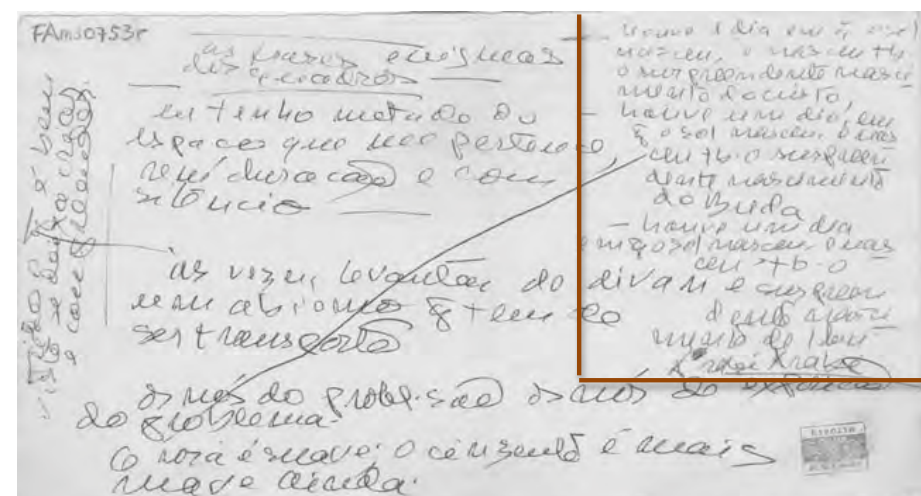 FAms0753r
as frases enigmas
dos quadros
eu tenho metido do
espaço que não pertence,
sem duração e com
silêncio
às vezes, levantar do divan é
um abismo q tem
ser transposto
os nós do probl. são os nós do
do problema.
O rosa é suave. O cinzento é mais
suave ainda.
tudo
visto de baixo
houve 1 dia em q o sol
nasceu, e nasceu tb.
o surpreendente nasci
mento do cristo,
– houve um dia, em
q o sol nasceu, e nas
ceu tb. o surpreen
dente nascimento
do Buda
– houve um dia
em q o sol nasceu, e nas
ceu tb. o
surpreen
dente nasci
mento de